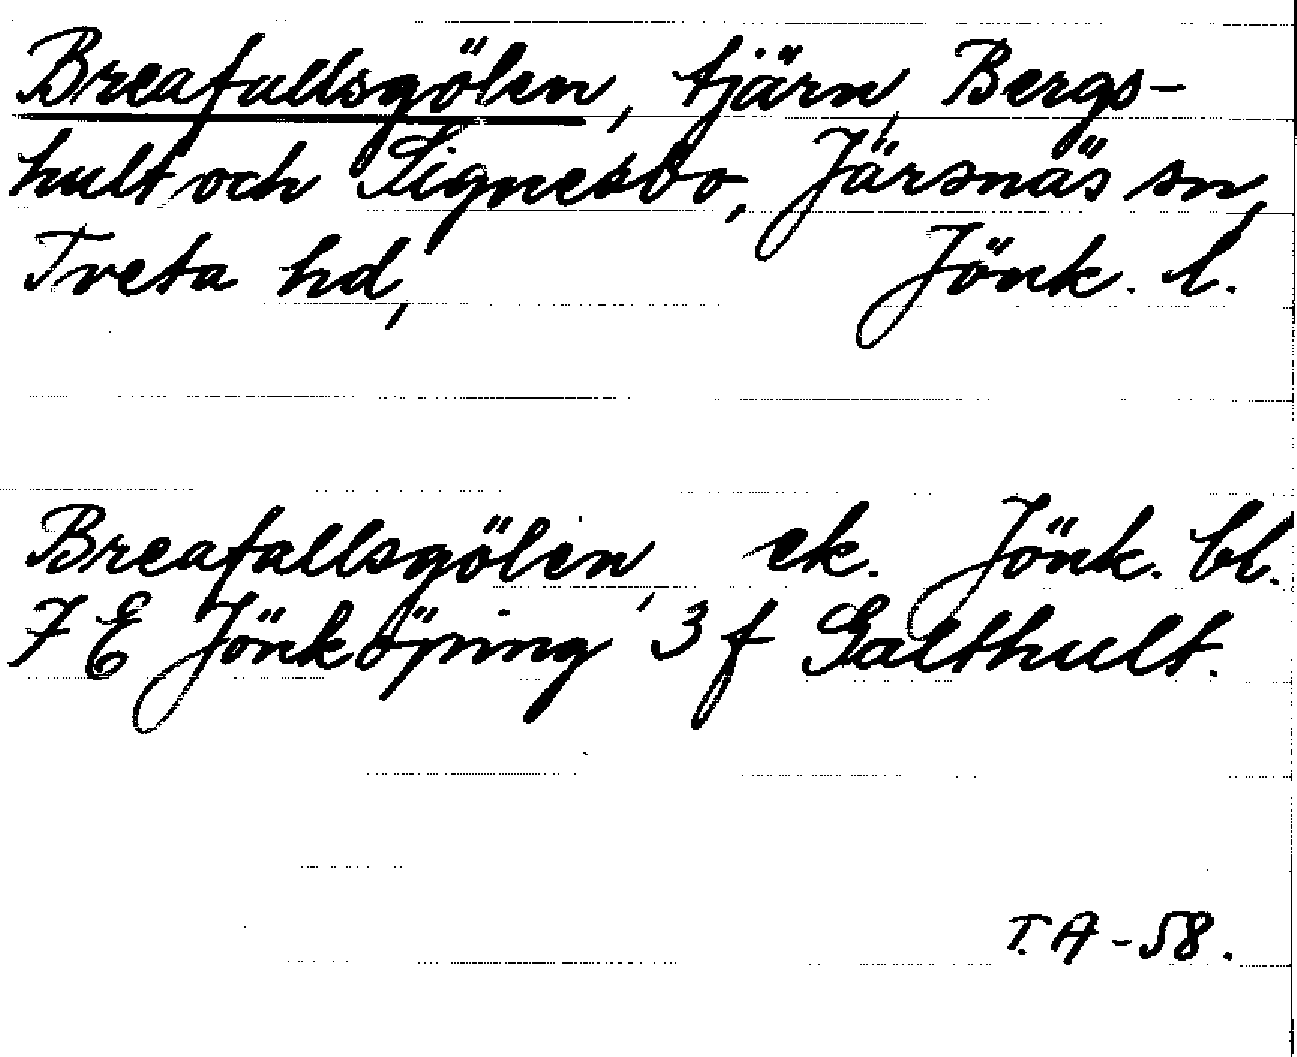 Breafallsgölen, tjärn, Bergs-
hult och Signesbo, Järsnäs sn,
Tveta hd, Jönk. l.
Breafallsgölen, ek. Jönk. bl.
7 E Jönköping 3 f Galthult.
T.A-58.